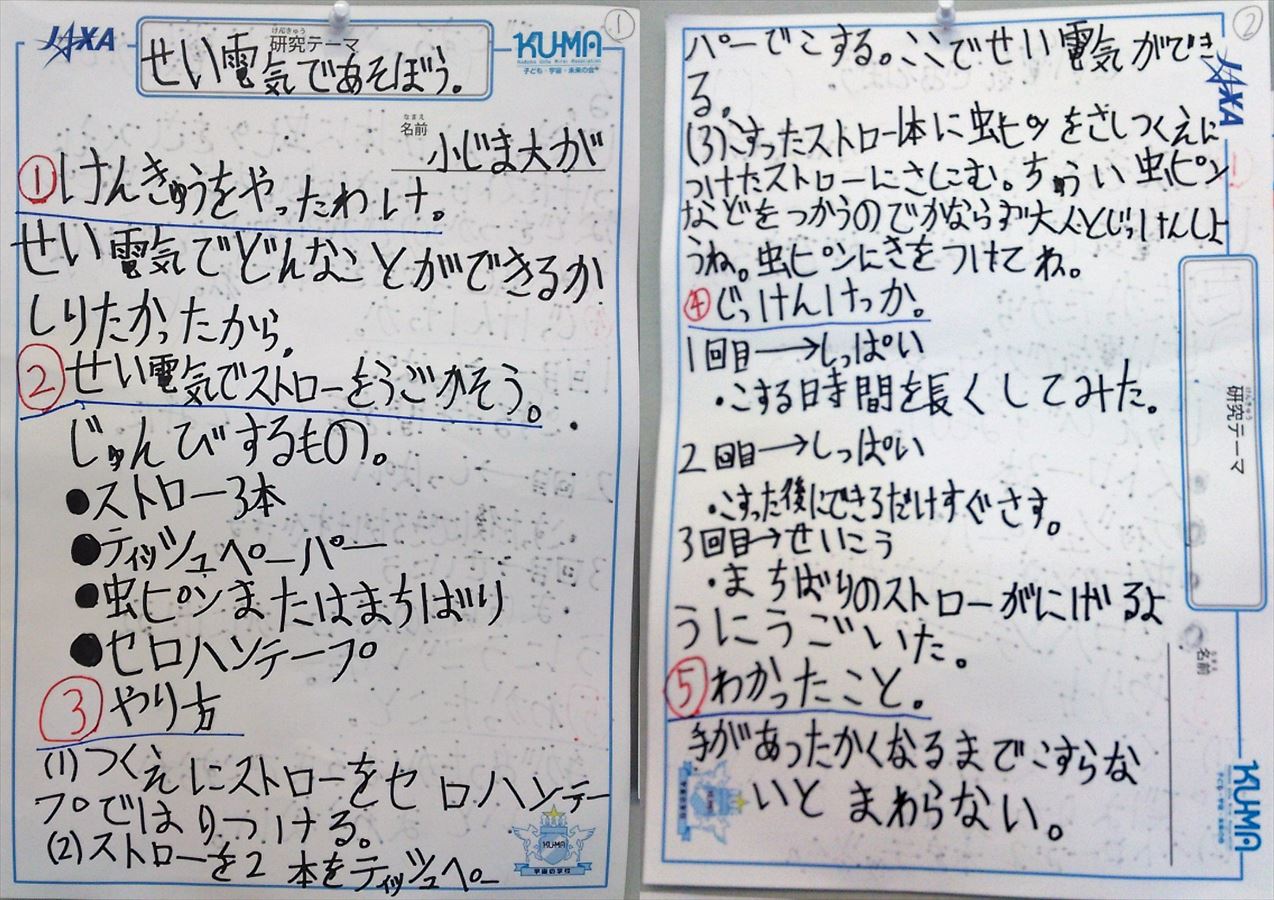 ①
JAXA
けんきゅう
研究テーマ
せい電気であそぼう。
KU-MA
子ども・宇宙・未来の会
なまえ
名前
小じま大が
①けんきゅうをやったわけ。
せい電気でどんなことができるか
しりたかったから。
②せい電気でストローをうごかそう。
じゅんびするもの。
●ストロー3本
●ティッシュペーパー
●虫ピンまたはまちばり
●セロハンテープ
③やり方
(1)つくえにストローをセロハンテー
プではりつける。
(2)ストローを2本をティッシュペー
KU-MA
宇宙の学校
②
パーでこする。ここでせい電気ができ
る。
(3)こすったストロー1本に虫ピンをさしつくえに
つけたストローにさしこむ。ちゅうい虫ピン
などをつかうのでかならず大人とじっけんしよ
うね。虫ピンにきをつけてね。
④じっけんけっか。
1回目→しっぱい
・こする時間を長くしてみた。
2回目→しっぱい
・こすった後にできるだけすぐさす。
3回目→せいこう
・まちばりのストローがにげるよ
うにうごいた。
⑤わかったこと。
手があったかくなるまでこすらな
いとまわらない。
JAXA
けんきゅう
研究テーマ
なまえ
名前
KU-MA